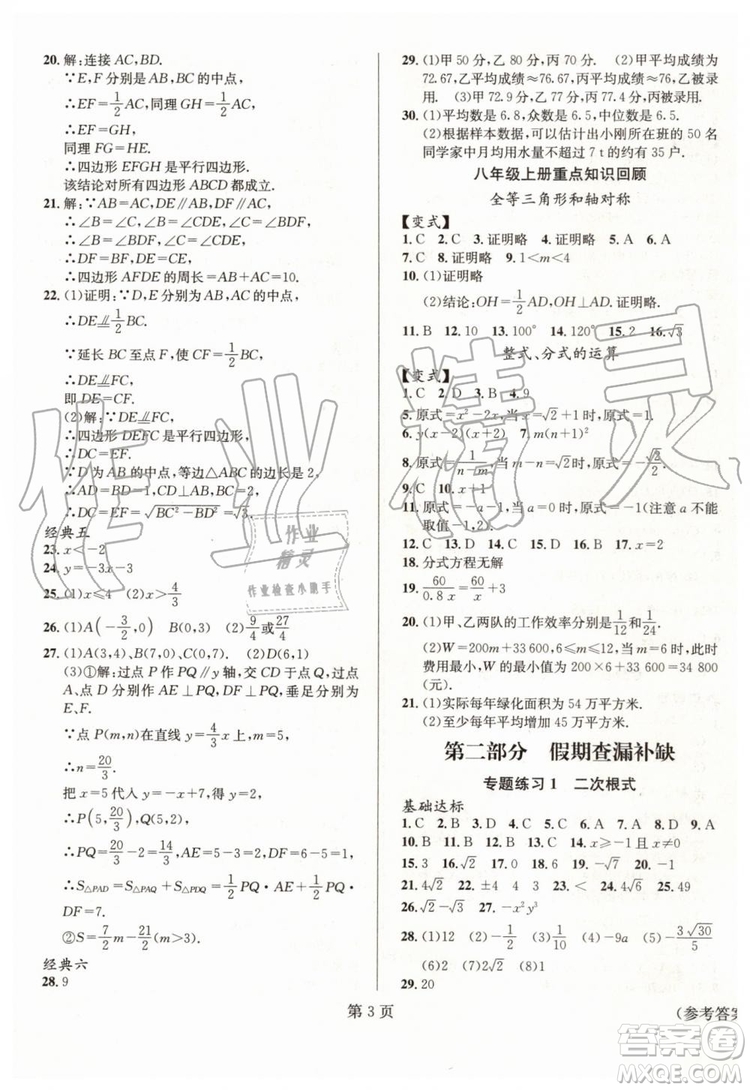 20. 解:连接 AC,BD.
∵E,F 分别是 AB,BC 的中点,
∴EF=1/2AC,同理 GH=1/2AC,
∴EF=GH,
同理 FG=HE.
∴四边形 EFGH 是平行四边形.
该结论对所有四边形 ABCD 都成立.
21. 解:∵AB=AC=5,DE∥AB,DF∥AC,
∴∠B=∠C,∠B=∠EDC,
∴∠B=∠BDF,∠C=∠EDC,
∴BF=DF,DE=EC,
∴四边形 AFDE 的周长=AB+AC=10.
22. (1)证明:∵D,E 分别为 AB,AC 的中点,
∴DE∥=1/2BC.
∵延长 BC 至点 F,使 CF=1/2BC,
∴DE∥=FC,
即 DE=CF.
(2)解:∵DE∥=FC,
∴四边形 DEFC 是平行四边形,
∴DC=EF.
∵D 为 AB 的中点,等边△ABC 的边长是 2,
∴AD=BD=1,CD⊥AB,BC=2,
∴DC=EF=√(BC²-BD²)=√3.
经典五
23. x<-2
24. y=-3
25. (1)x≤4 (2)x>2
26. (1)A(-3/2,0) B(0,3) (2)9/4或27/4
27. (1)A(3,4),B(0,7),C(7,0) (2)D(6,1)
(3)①解:过点 P 作 PQ∥y 轴,交 CD 于点 Q,过点
A、点 D 分别作 AE⊥PQ,DF⊥PQ,垂足分别为
E、F.
∵点 P(m,n)在直线 y=4/3x 上,m=5,
∴n=20/3.
把 x=5 代入 y=-x+7,得 y=2,
∴P(5,20/3),Q(5,2),
∴PQ=20/3-2=14/3,AE=5-3=2,DF=6-5=1,
∴S△PAD=S△PAQ+S△PDQ=1/2PQ·AE+1/2PQ·
DF=7.
②S=7/2m-21/2(m>3).
经典六
28. 9
29. (1)甲 50 分,乙 80 分,丙 70 分. (2)甲平均成绩≈
72.67,乙平均成绩≈76.67,丙平均成绩≈76,乙被录
用. (3)甲72.9分,乙77分,丙77.4分,丙被录用.
30. (1)平均数是 6.8,众数是 6.5,中位数是 6.5.
(2)根据样本数据,可以估计出小刚所在班的 50 名
同学家中月均用水量不超过 7 t 的约有 35 户.
八年级上册重点知识回顾
全等三角形和轴对称
【变式】
1. C 2. D 3. C 4. 证明略 5. A 6. A
7. C 8. 证明略 9. 1<m<4
10. (1)证明略
(2)结论:OH=1/2AD,OH⊥AD.
11. B 12. 10 13. 100° 14. 120° 15. 2 16. √3
整式、分式的运算
【变式】
1. C 2. A 3. D 4. 9
5. 原式=x²-2x,当 x=√2+1时,原式=1.
6. y(x+2)² 7. m(n+1)²
8. 原式=-1/(n-m),当m-n=√2时,原式=√2/2.
9. C 10. +
11. 原式=-a-1,当 a=0 时,原式=-1(注意 a 不能
取值-1,2).
12. C 13. B 14. A 15. D 16. C 17. -3
18. 分式方程无解
19. 60/0.8x=60/x+3
20. (1)甲、乙两队的工作效率分别是1/12和1/24.
(2)W=200m+33 600,6≤m≤12,且 m 是整数,此时
费用最小,W 的最小值为 200×6+33 600=34 800
(元).
21. (1)实际每年绿化面积为 54 万平方米.
(2)至少每年平均增加 45 万平方米.
第二部分 假期查漏补缺
专题练习1 二次根式
基础达标
1. C 2. D 3. C 4. C 5. D 6. D 7. C 8. A 9. C
10. B 11. C 12. D 13. A 14. B
15. 3 16. √3 17. -5√7 18. 0 19. √5 20. -1
21. 4√9 22. ±4 23. 10 24. √3 25. <
26. √2-1 27. -x²y³
28. (1)12 (2)-1/2 (3)-9/2 (4)-9a (5)-3√30/5
(6)2 (7)2
29. 20
第 3 页
(参考答案
作业精灵
作业
精灵
作业检查小帮手
答案圈
MXQE.COM